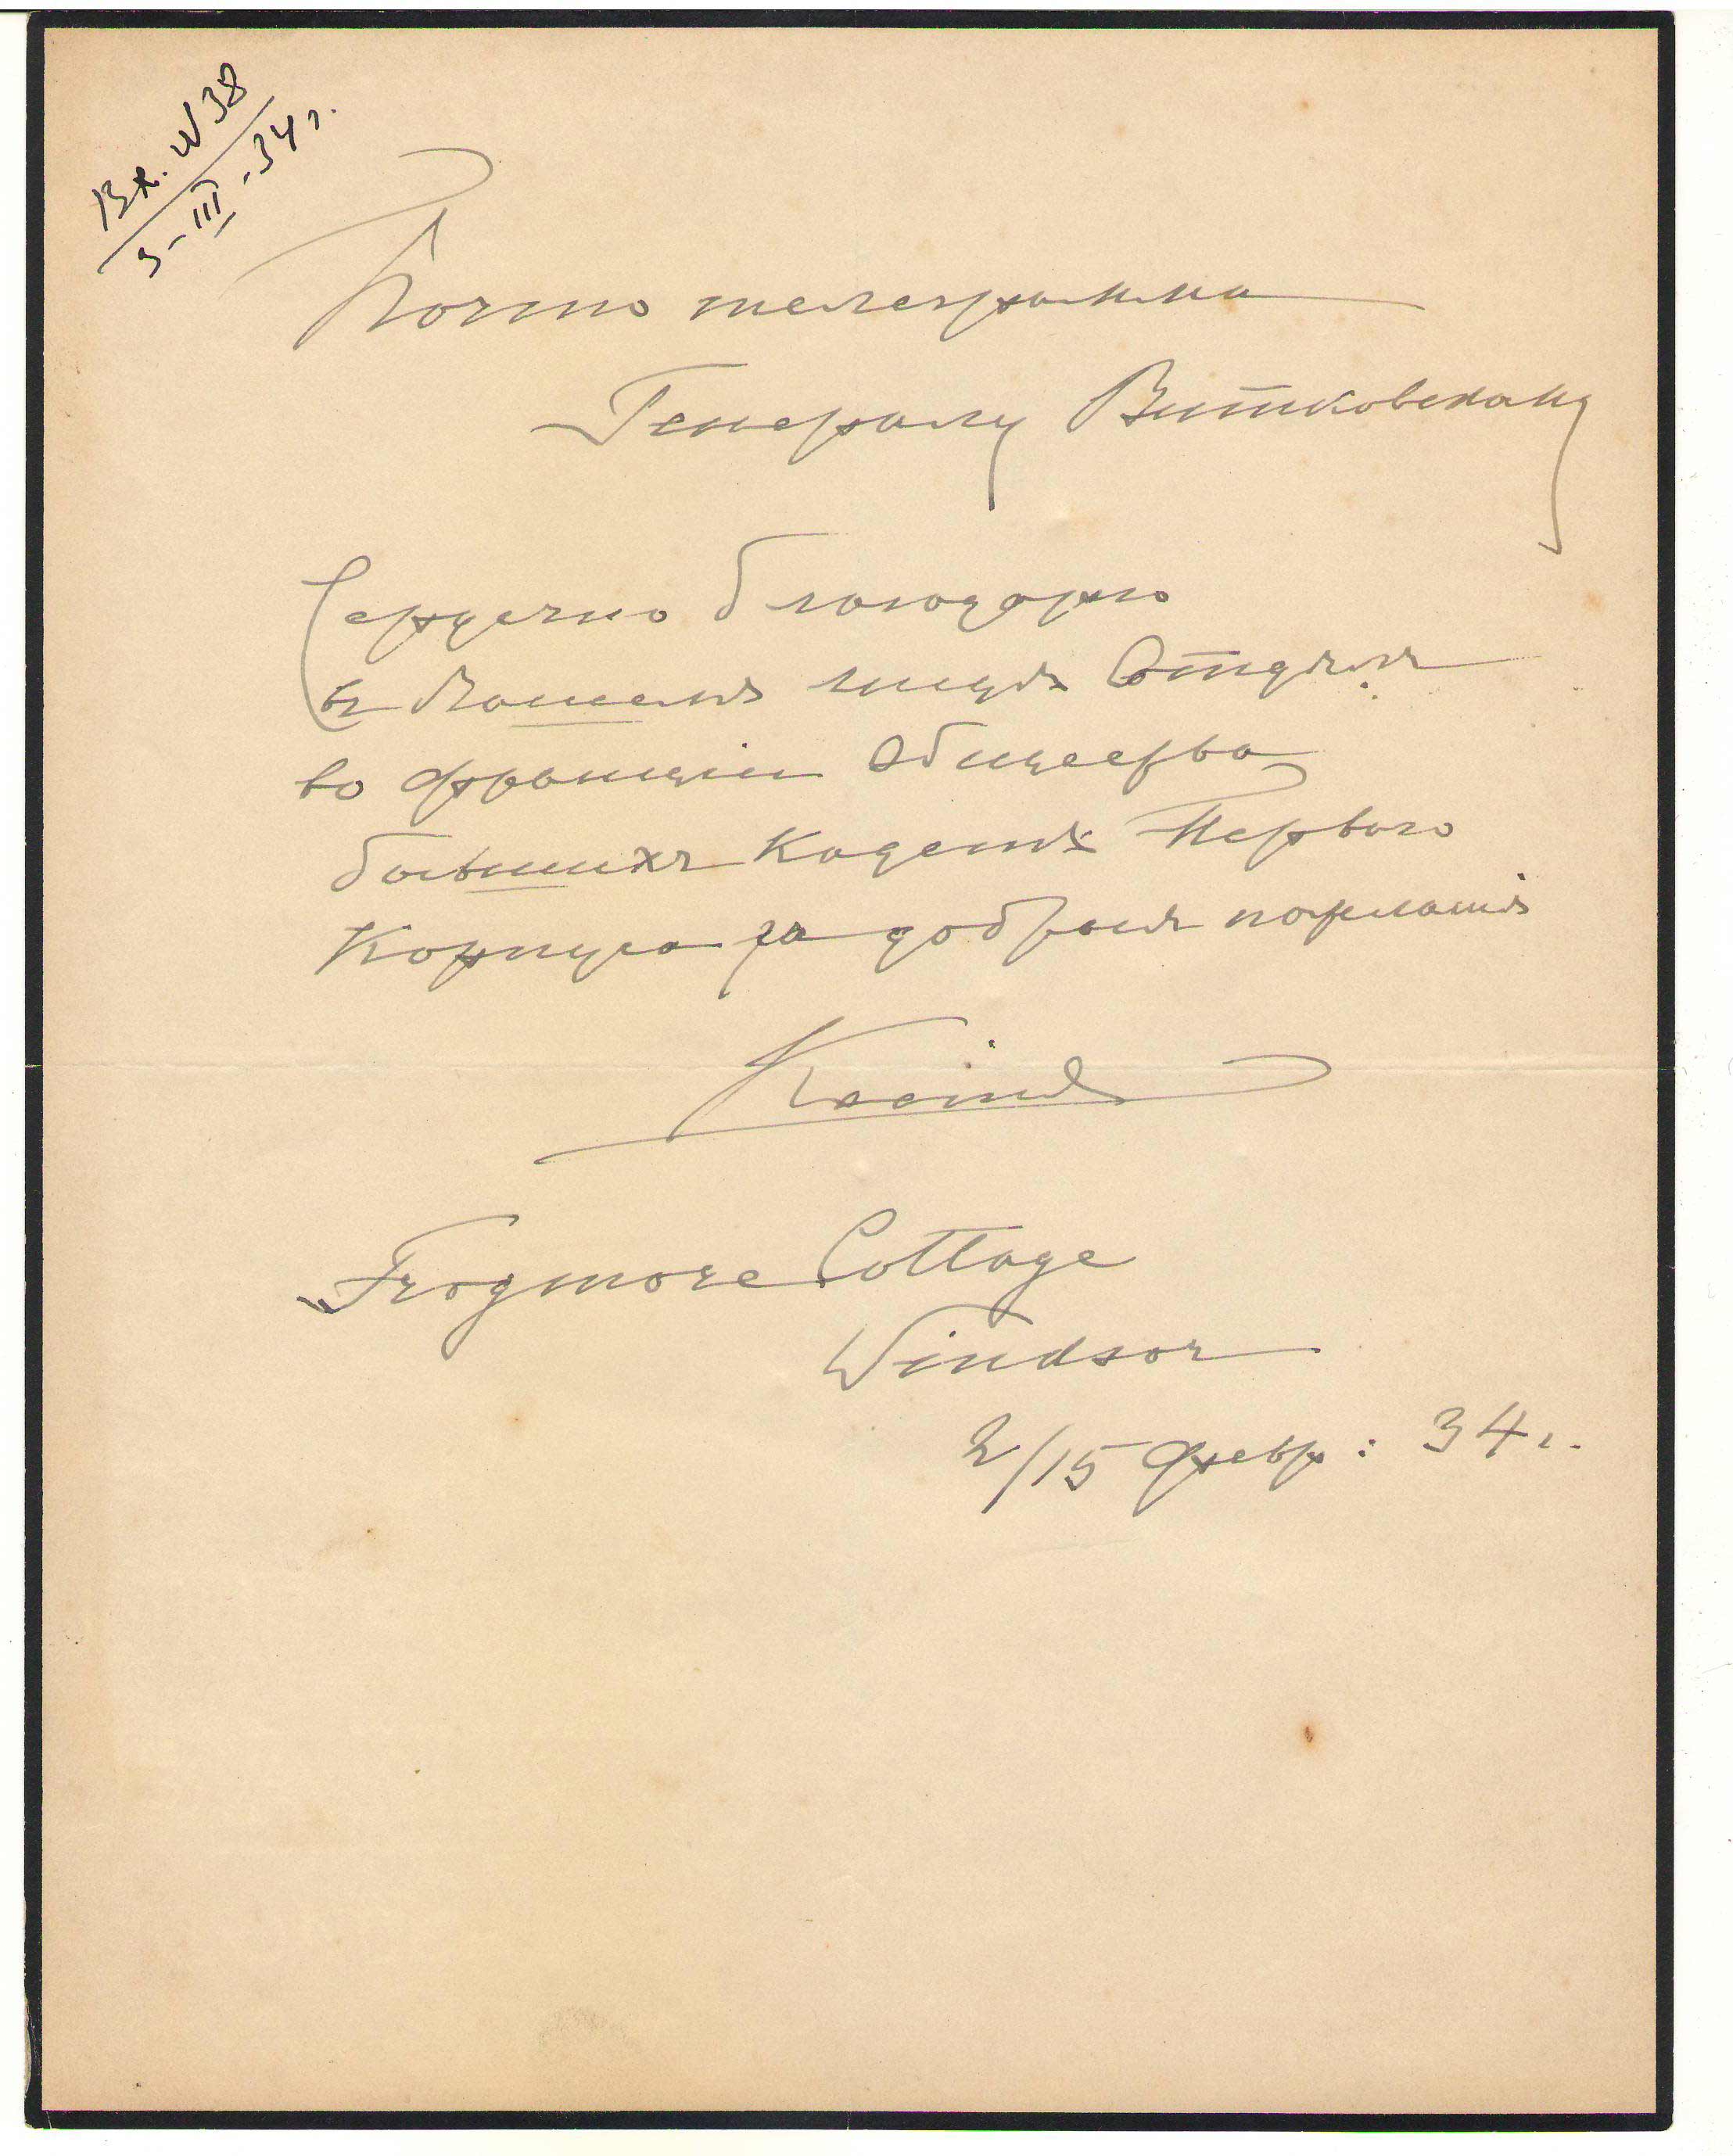 Вх. N 38
3-III-34 г.
Почто телеграмма
Генералу Витковскому
Сердечно благодарю
въ Вашемъ лицѣ Отдѣлъ
во Франціи Общества
бывшихъ Кадетъ Перваго
Корпуса за добрыя
Ксенія
Frogmore Cottage
Windsor
2/15 февр: 34 г.